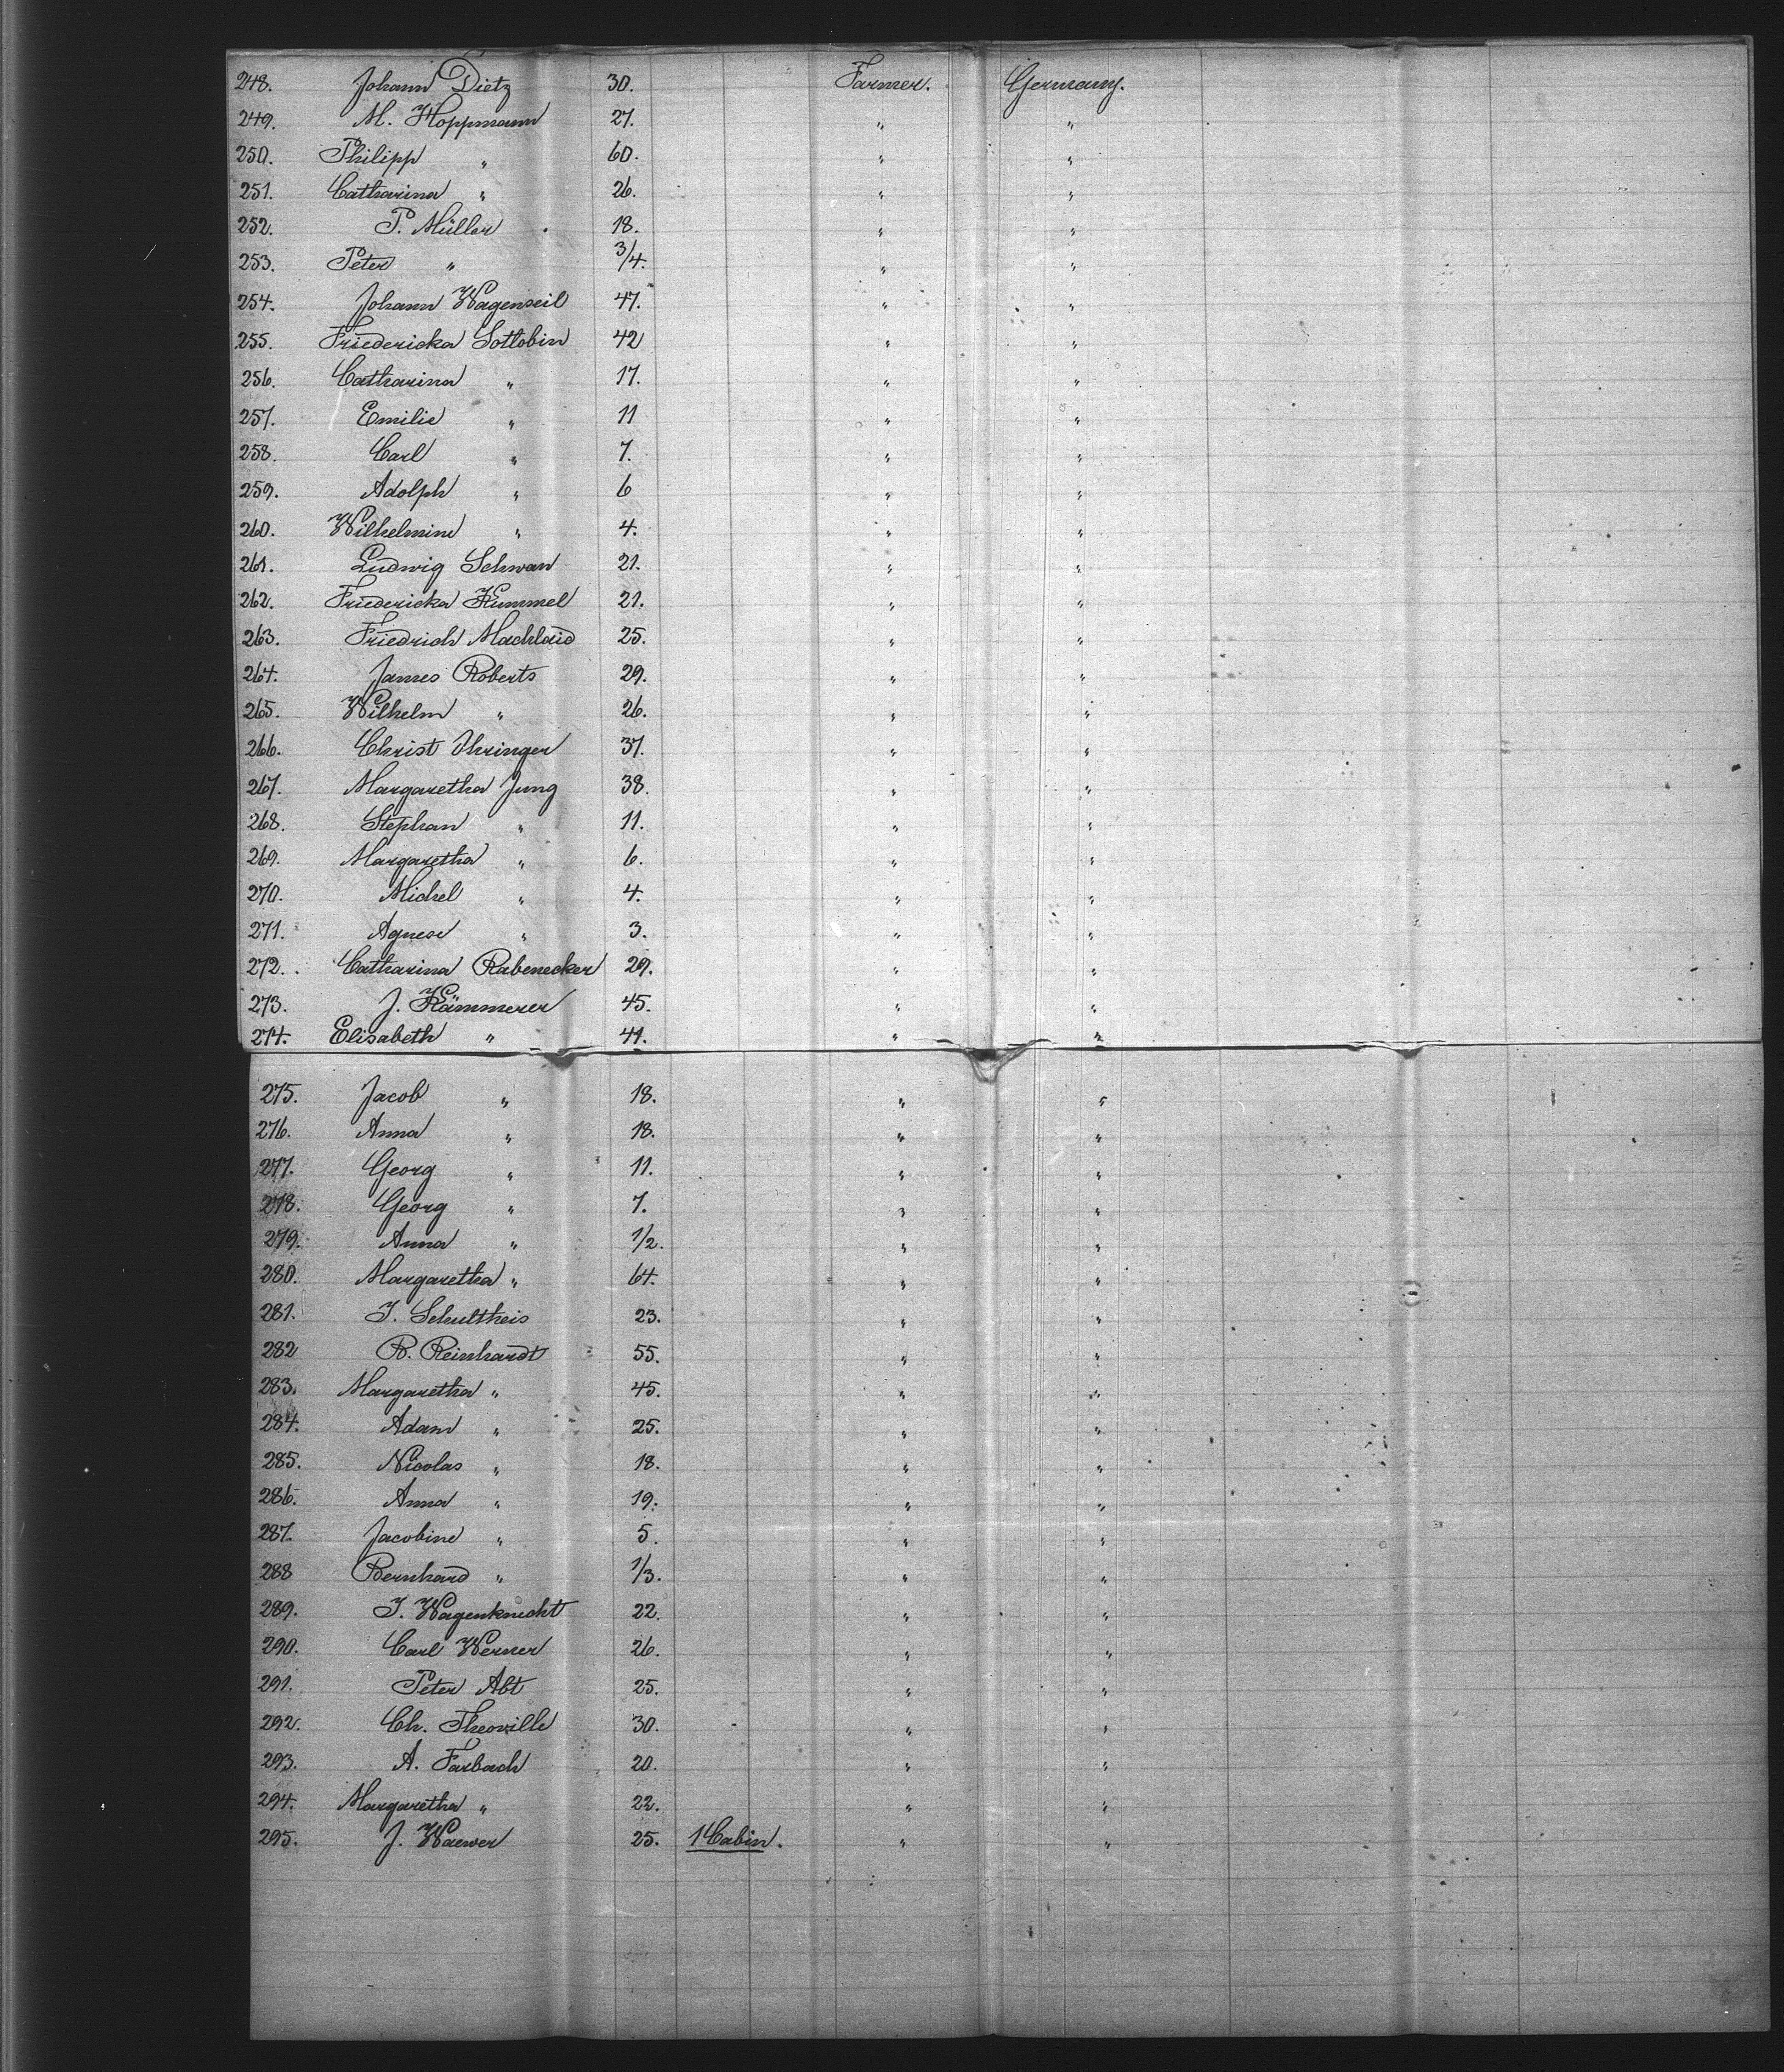 248. Johann Dietz 30. Farmer. Germany.
249. M. Hoppmann 27. " "
250. Philipp " 60. " "
251. Catharina " 26. " "
252. P. Müller 18. " "
253. Peter " 3/4. " "
254. Johann Wagenseil 47. " "
255. Friedericka Gottobin 42 " "
256. Catharina " 17. " "
257. Emilie " 11 " "
258. Carl " 7. " "
259. Adolph " 6 " "
260. Wilhelmine " 4. " "
261. Ludwig Schwan 21. " "
262. Friedericka Kummel 21. " "
263. Friedrich Machlaid 25. " "
264. James Roberts 29. " "
265. Wilhelm " 26. " "
266. Christ Uhringer 37. " "
267. Margaretha Jung 38. " "
268. Stephan " 11. " "
269. Margaretha " 6. " "
270. Michel " 4. " "
271. Agnese " 3. " "
272. Catharina Rabenecker 29. " "
273. J. Kämmerer 45. " "
274. Elisabeth " 41. " "
275. Jacob " 18. " "
276. Anna " 18. " "
277. Georg " 11. " "
278. Georg " 7. " "
279. Anna " 1/2. " "
280. Margaretha " 64. " "
281. J. Schultheis 23. " "
282 B. Reinhardt 55. " "
283. Margaretha " 45. " "
284. Adam " 25. " "
285. Nicolas " 18. " "
286. Anna " 19. " "
287. Jacobine " 5. " "
288 Bernhard " 1/3. " "
289. J. Wagenknecht 22. " "
290. Carl Werner 26. " "
291. Peter Abt 25. " "
292. Ch. Theoville 30. " "
293. A. Farbach 20. " "
294. Margaretha " 22. " "
295. J. Waewer 25. 1 Cabin. " "